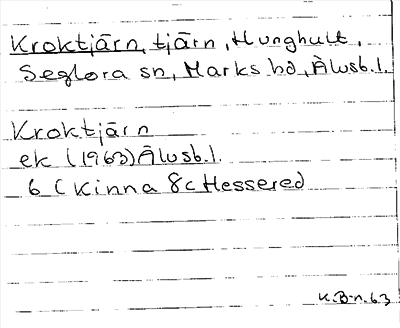 Kroktjärn, tjärn, Hunghult,
Seglora sn, Marks hd, Älvsb.l.
Kroktjärn
ek (1963) Älvsb.l.
6 (Kinna 8c Hessered
K.B-n.63